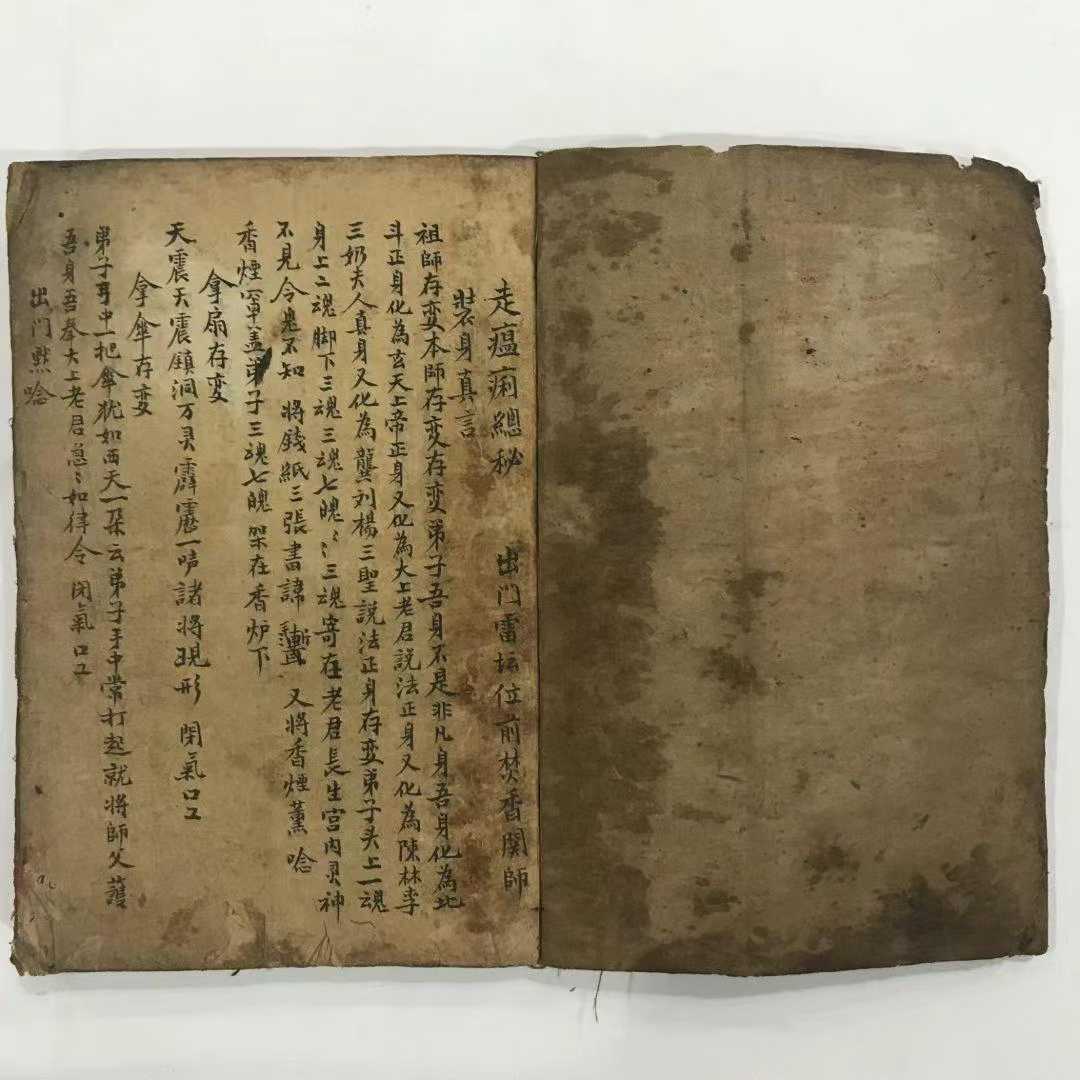 走瘟痢總秘 出门雷坛位前焚香関師
裝身真言
祖師存变本師存变存变弟子吾身不是非凡身吾身化為北
斗正身化為玄天上帝正身又化為大上老君説法正身又化為陳林李
三奶夫人真身又化為龔刘楊三聖説法正身存变弟子头上一魂
身上二魂脚下三魂三魂七魄〻〻三魂寄在老君長生宫内灵神
不見令鬼不知 将錢紙三張書諱 又将香煙薰唸
香煙窜盖弟子三魂七魄架在香炉下
拿扇存变
天震天震鎮洞万灵霹靂一声諸将現形 閉氣口工
拿傘存变
弟子手中一把傘犹如西天一朵云弟子手中常打起就将師父護
吾身吾奉大上老君急〻如律令 闭氣口工
出门黙唸